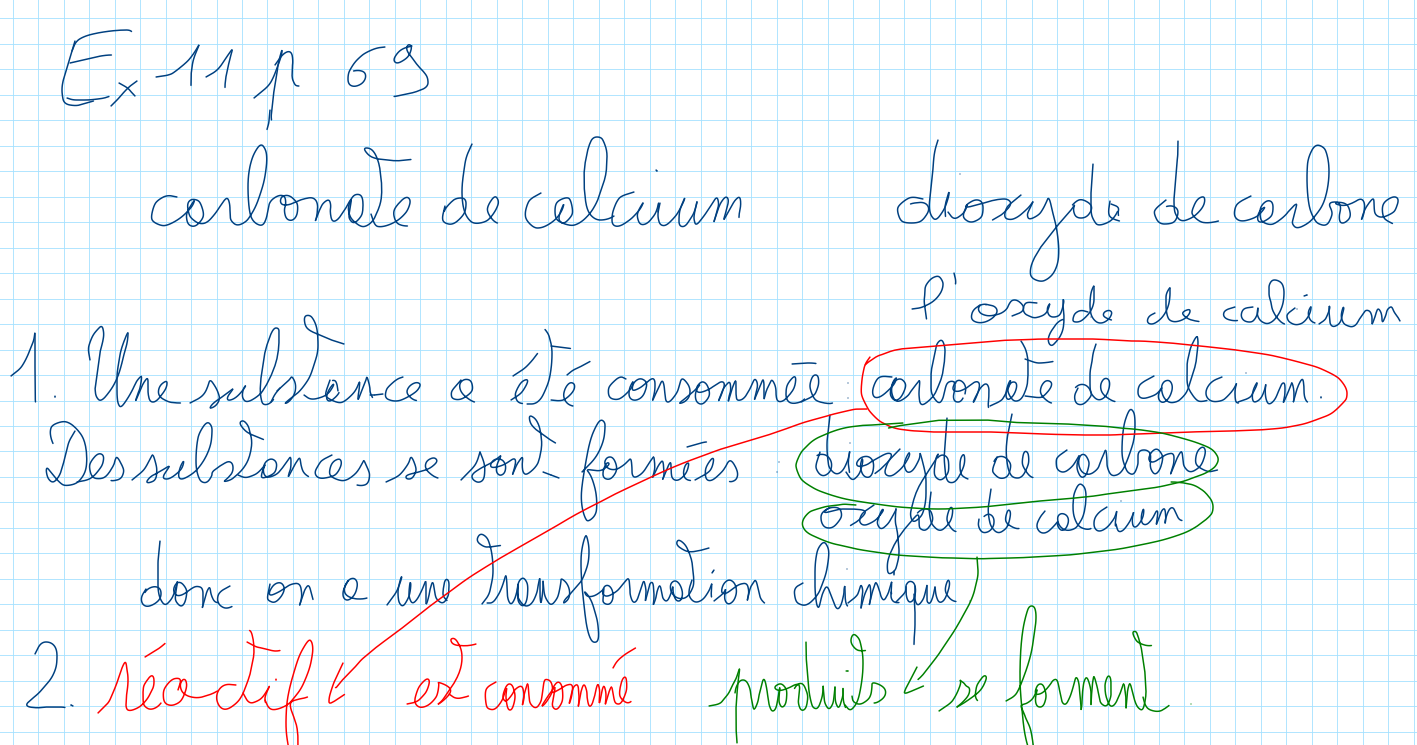 Ex 11 p 69
carbonate de calcium dioxyde de carbone
l'oxyde de calcium
1. Une substance a été consommée : carbonate de calcium.
Des substances se sont formées : dioxyde de carbone
oxyde de calcium
donc on a une transformation chimique
2. réactif est consommé produits se forment.